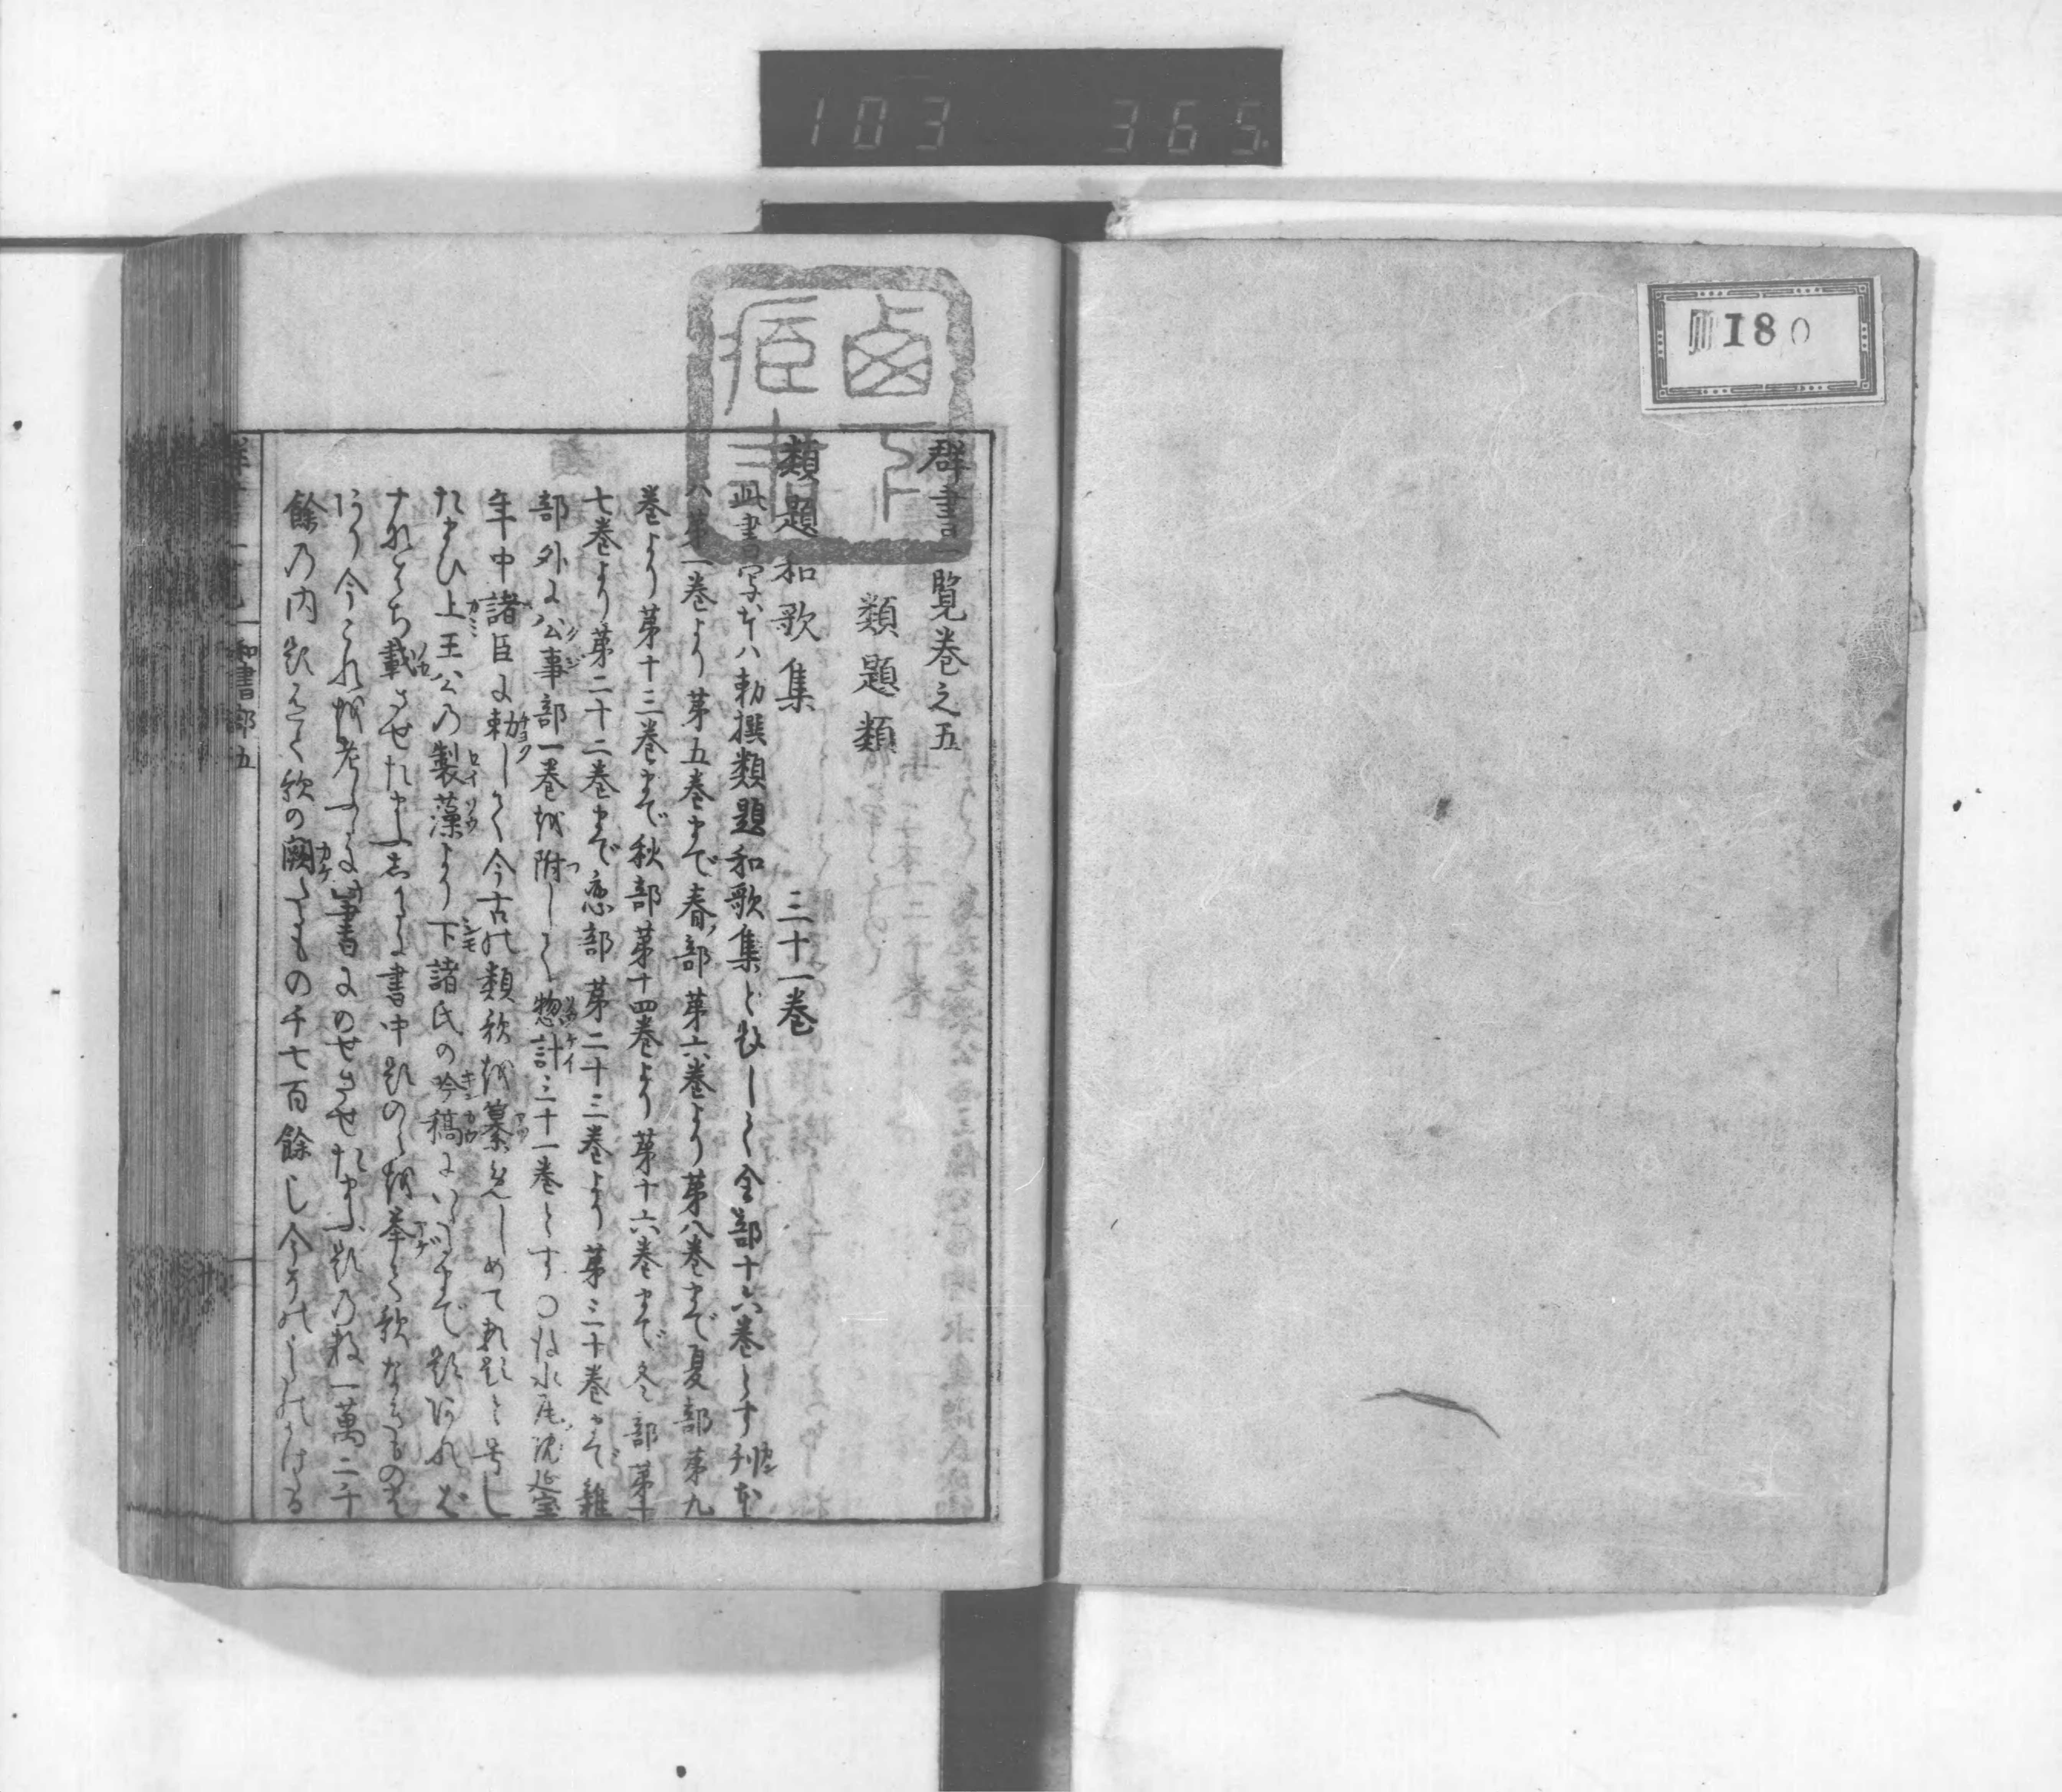 103 365
180
群書一覧巻之五
類題類
類題和歌集 三十一巻
此書写本ハ勅撰類題和歌集と題して全部十六巻とす刊本
ハ第一巻より第五巻まで春部第六巻より第八巻まで夏部第九
巻より第十三巻まで秋部第十四巻より第十六巻まで冬部第十
七巻より第二十二巻まで恋部第二十三巻より第三十巻まで雑
部外に公事部一巻を附して惣計三十一巻とす〇後水尾院延宝
年中諸臣に勅して今古の類歌を纂せしめて類題と号し
たまひ上王公の製藻より下諸氏の吟稿にいたるまで題あれば
すなはち載させたまふしかるに書中題のミを挙て歌なきもの多
餘の内題ありて歌の闕たるもの千七百餘
和書部五